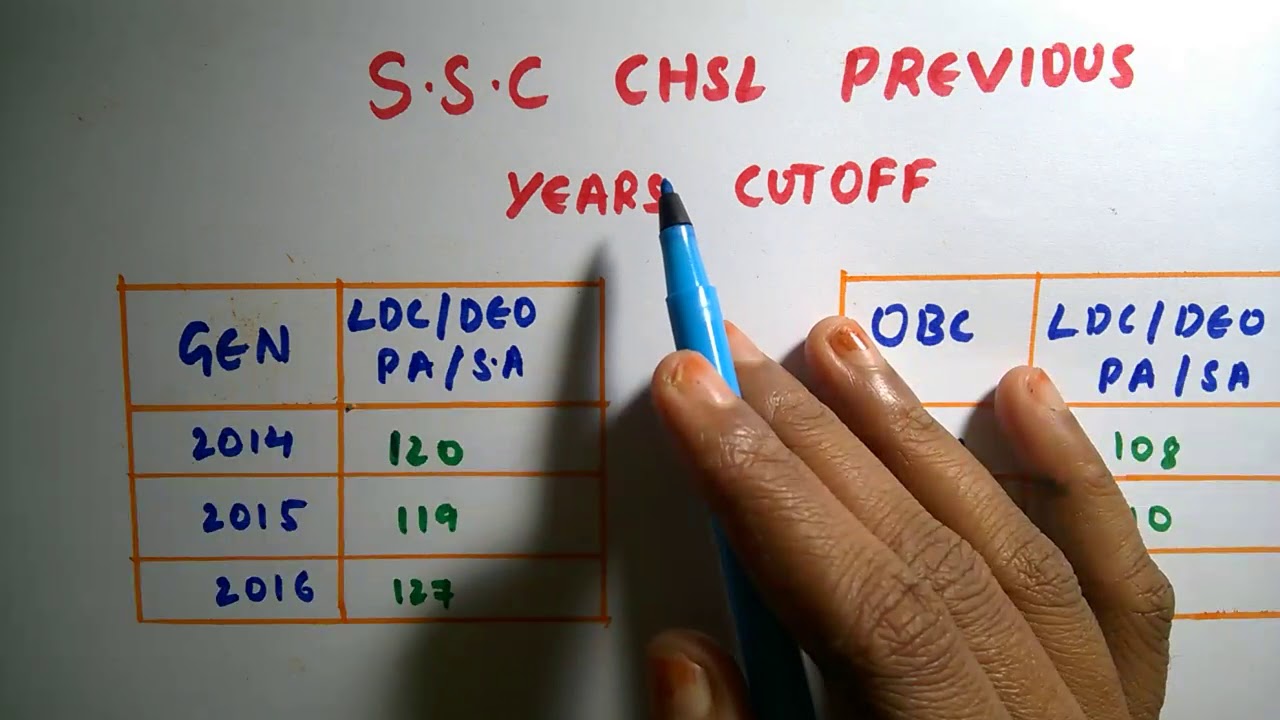 S.S.C CHSL PREVIOUS
YEARS CUTOFF
GEN LDC/DEO
PA/S.A
2014 120
2015 119
2016 127
OBC LDC/DEO
PA/SA
108